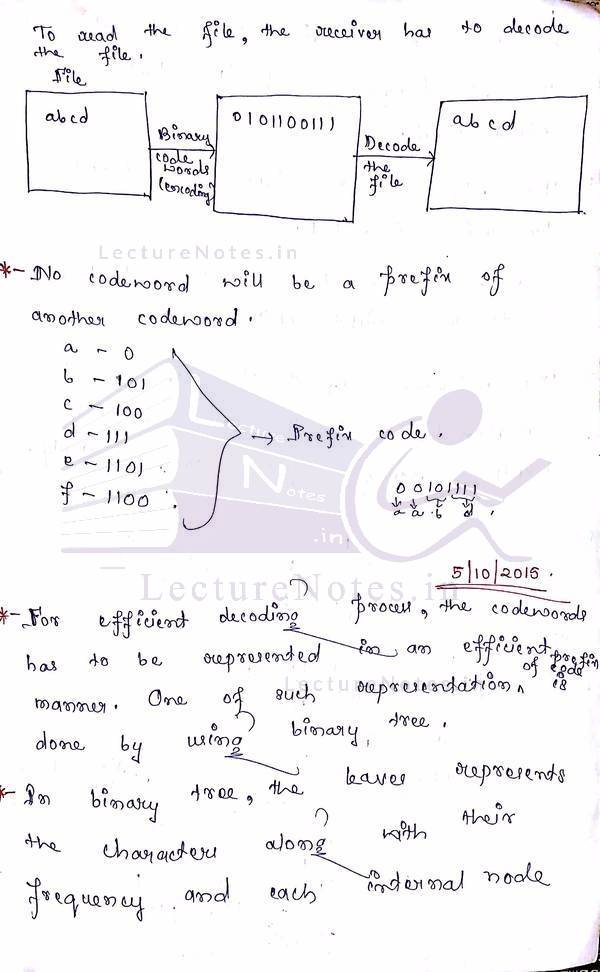 To read the file, the receiver has to decode
the file.
File
abcd
Binary
code
words
(encoding)
0101100111
Decode
the
file
abcd
LectureNotes.in
*- No codeword will be a prefix of
another codeword.
a - 0
b - 101
c - 100
d - 111
e - 1101
f - 1100
→ Prefix code.
00101111
a a b d.
Lecture
Notes
.in
5/10/2015.
LectureNotes.in
*- For efficient decoding process, the codewords
has to be represented in an efficient
manner. One of such representation of prefix code is
LectureNotes.in
done by using binary tree.
*- In binary tree, the leaves represents
the characters along with their
frequency and each internal node